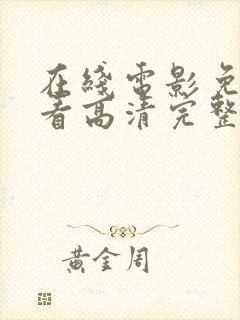 在綫電影免
看高清完整
黃金周